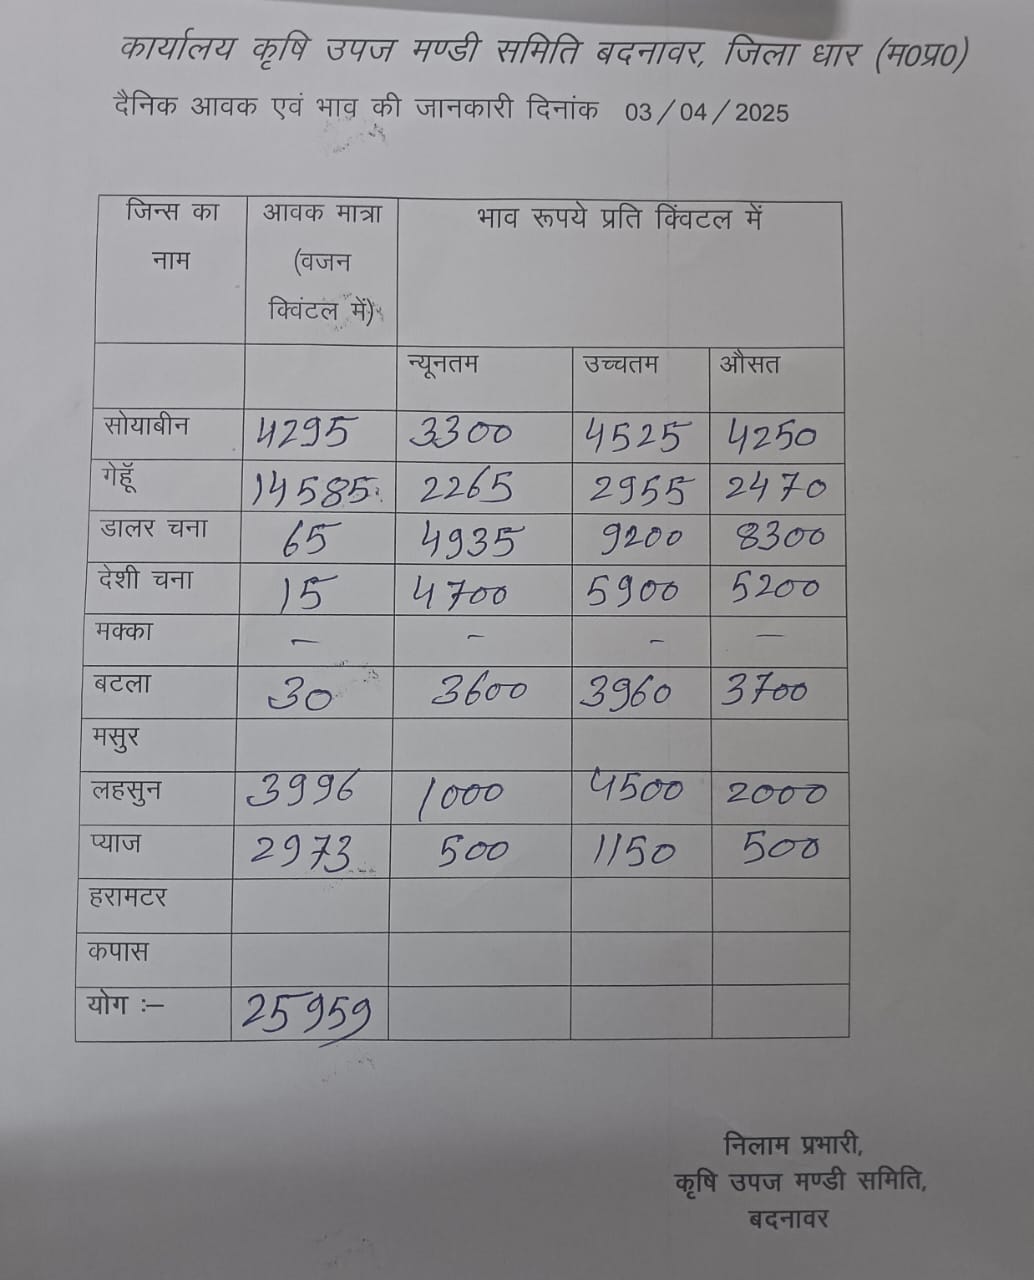 कार्यालय कृषि उपज मण्डी समिति बदनावर, जिला धार (म0प्र0)
दैनिक आवक एवं भाव की जानकारी दिनांक 03/04/2025
जिन्स का नाम आवक मात्रा (वजन क्विंटल में) भाव रूपये प्रति क्विंटल में
न्यूनतम उच्चतम औसत
सोयाबीन 4295 3300 4525 4250
गेहूँ 14585 2265 2955 2470
डालर चना 65 4935 9200 8300
देशी चना 15 4700 5900 5200
मक्का – – – –
बटला 30 3600 3960 3700
मसुर
लहसुन 3996 1000 4500 2000
प्याज 2973 500 1150 500
हरामटर
कपास
योग :– 25959
निलाम प्रभारी,
कृषि उपज मण्डी समिति,
बदनावर